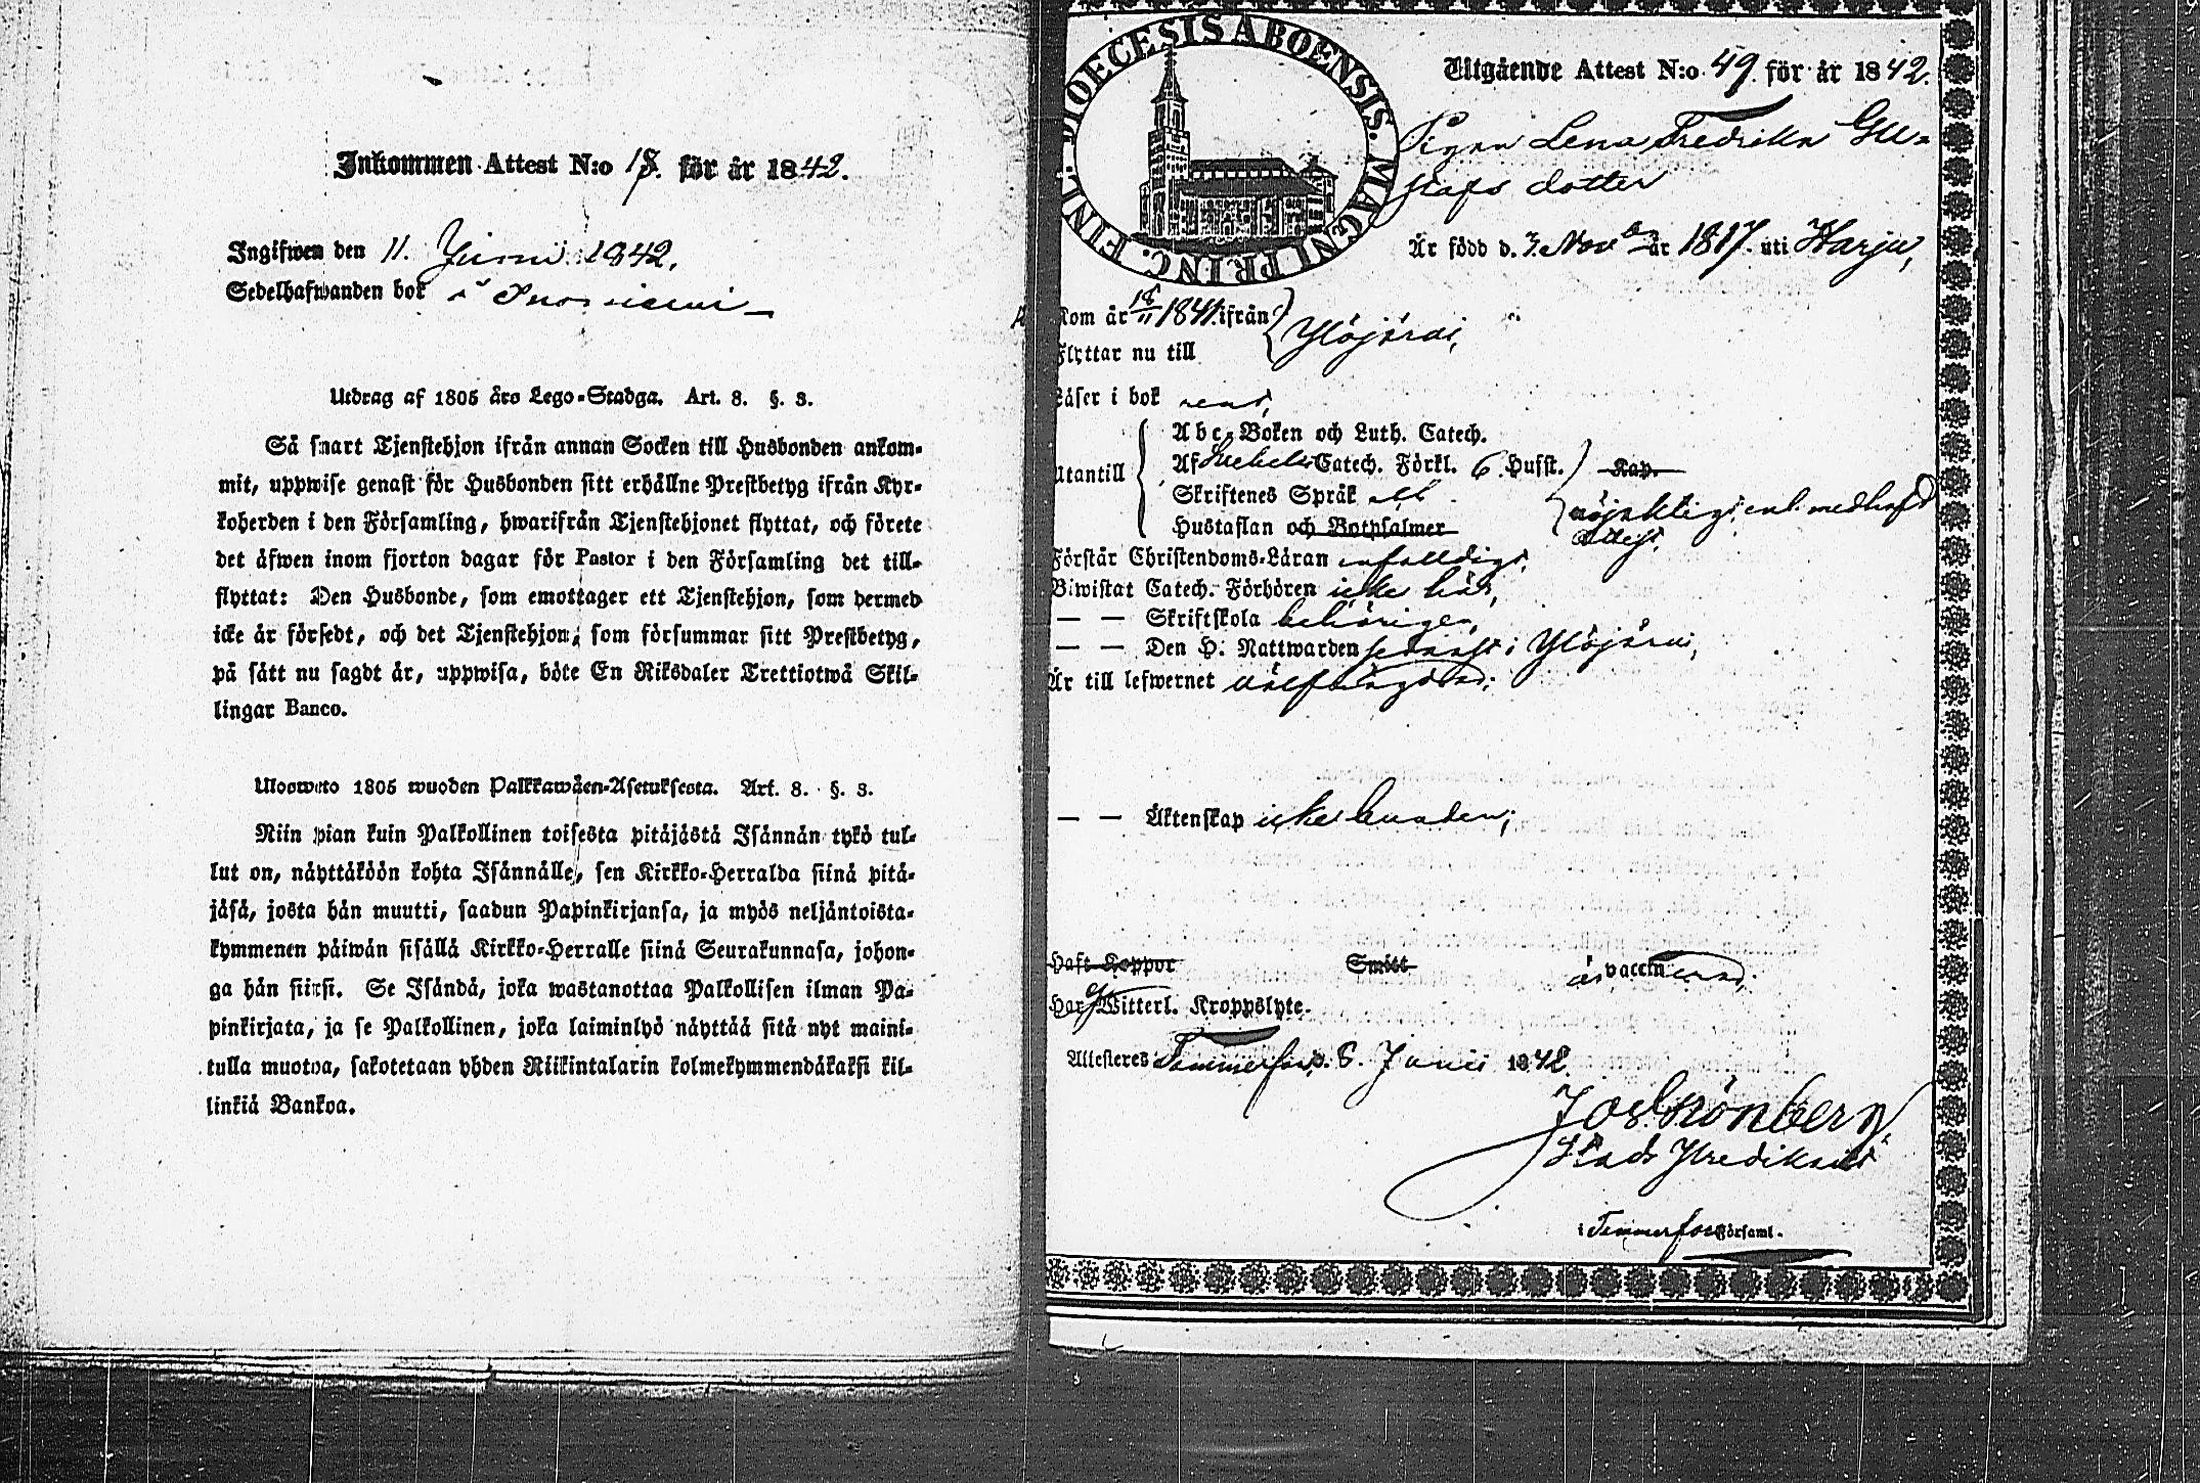 Inkommen Attest N:o 18. för år 1842.
Ingifwen den 11. Junii 1842.
Sedelhafwanden bor i
Utdrag af 1805 års Lego-Stadga. Art. 8. §. 3.
Så snart Tjenstehjon ifrån annan Socken till Husbonden ankom-
mit, uppwise genast för Husbonden sitt erhållne Prestbetyg ifrån Kyr-
koherden i den Församling, hwarifrån Tjenstehjonet flyttat, och förete
det äfwen inom fjorton dagar för Pastor i den Församling det till-
flyttat: Den Husbonde, som emottager ett Tjenstehjon, som dermed
icke är försedt, och det Tjenstehjon, som försummar sitt Prestbetyg,
på sätt nu sagdt är, uppwisa, böte En Riksdaler Trettiotwå Skil-
lingar Banco.
Ulosweto 1805 wuoden Palkkawäen-Asetuksesta. Art. 8. §. 3.
Niin pian kuin Palkollinen toisesta pitäjästä Isännän tykö tul-
lut on, näyttäköön kohta Isännälle, sen Kirkko-Herralda siinä pitä-
jäsä, josta hän muutti, saadun Papinkirjansa, ja myös neljäntoista-
kymmenen päiwän sisällä Kirkko-Herralle siinä Seurakunnasa, johon-
ga hän siirsi. Se Isändä, joka wastanottaa Palkollisen ilman Pa-
pinkirjata, ja se Palkollinen, joka laiminlyö näyttää sitä nyt maini-
tulla muotoa, sakotetaan yhden Riikintalarin kolmekymmendäkaksi kil-
linkiä Bankoa.
DIOECESIS ABOENSIS. MAGNI PRINC. FINL.
Utgående Attest N:o 49. för år 1842.
Pigan Lena Fredrika Gu-
stafs dotter
Är född d. 3. Nov br år 1817. uti Harju,
Kom år 18/11 1841. ifrån
Flyttar nu till } Ylöjärvi,
Läser i bok rent,
Utantill
Abc-Boken och Luth. Catech.
Af Svebelii Catech. Förkl. 6. Husst. Kap.
Skriftenes Språk
Hustaflan och Botpsalmer
nöjaktigt enl. medhafd
attest.
Förstår Christendoms-Läran enfaldigt.
Biwistat Catech. Förhören icke här,
— — Skriftskola behörigen,
— — Den H. Nattwarden senast i Ylöjärvi,
Är till lefwernet välfrägdad;
— — Äktenskap icke bunden;
Haft Koppor Smitt är vaccinerad;
Har ej Witterl. Kroppslyte.
Attesteras Tammerfors d. 8. Junii 1842.
Jos. Grönberg
Stads Predikant
i Tammerfors Församl.